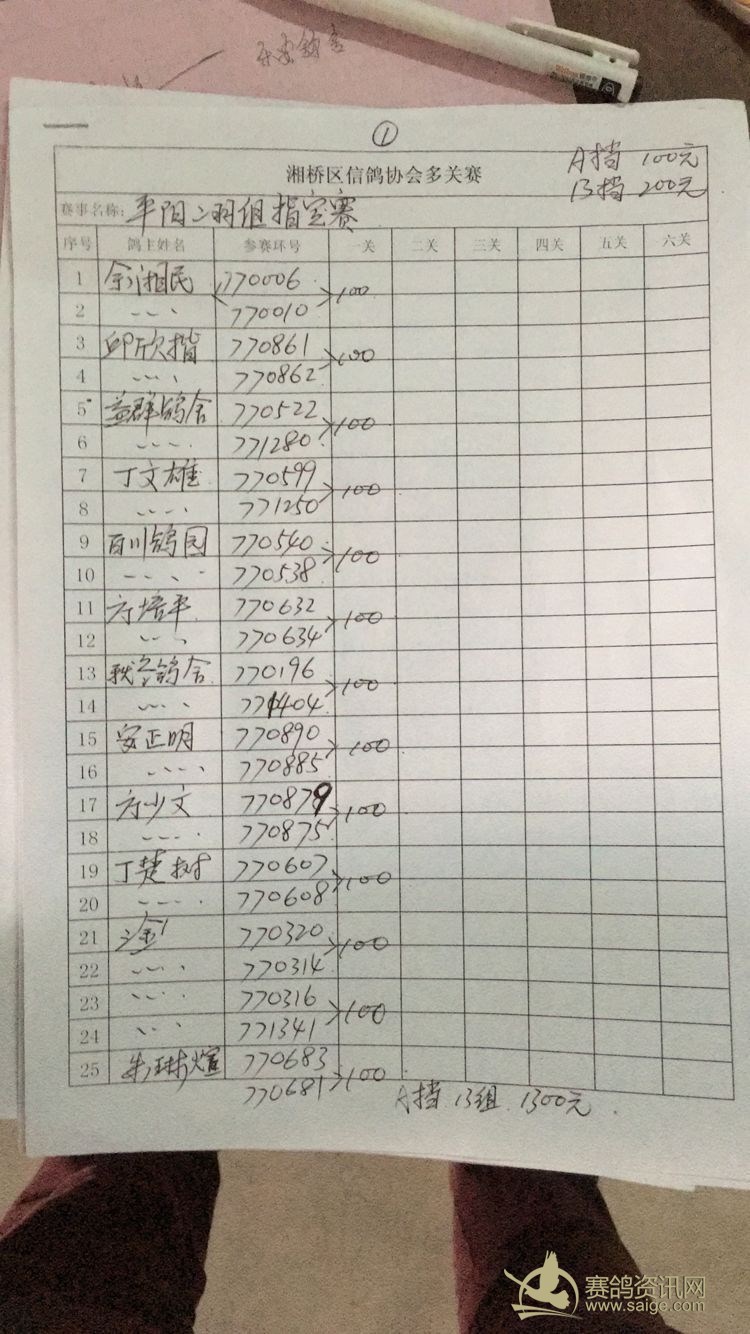 ①
湘桥区信鸽协会多关赛
A挡 100元
B挡 200元
赛事名称: 平阳二羽组指定赛
序号 鸽主姓名 参赛环号 一关 二关 三关 四关 五关 六关
1 余湘民 770006
100
2 〃 770010
3 邱欣揩 770861
100
4 〃 770862
5 益群鸽舍 770522
100
6 〃 771280
7 丁文雄 770599
100
8 〃 771250
9 百川鸽园 770540
100
10 〃 770538
11 方培平 770632
100
12 〃 770634
13 鸽舍 770196
100
14 〃 771404
15 安正明 770890
100
16 〃 770885
17 方少文 770879
100
18 〃 770875
19 丁楚树 770607
100
20 〃 770608
21 770320
100
22 〃 770314
23 〃 770316
100
24 〃 771341
25 朱琳煊 770683
100
770681
A挡 13组 1300元
赛鸽资讯网
www.saige.com